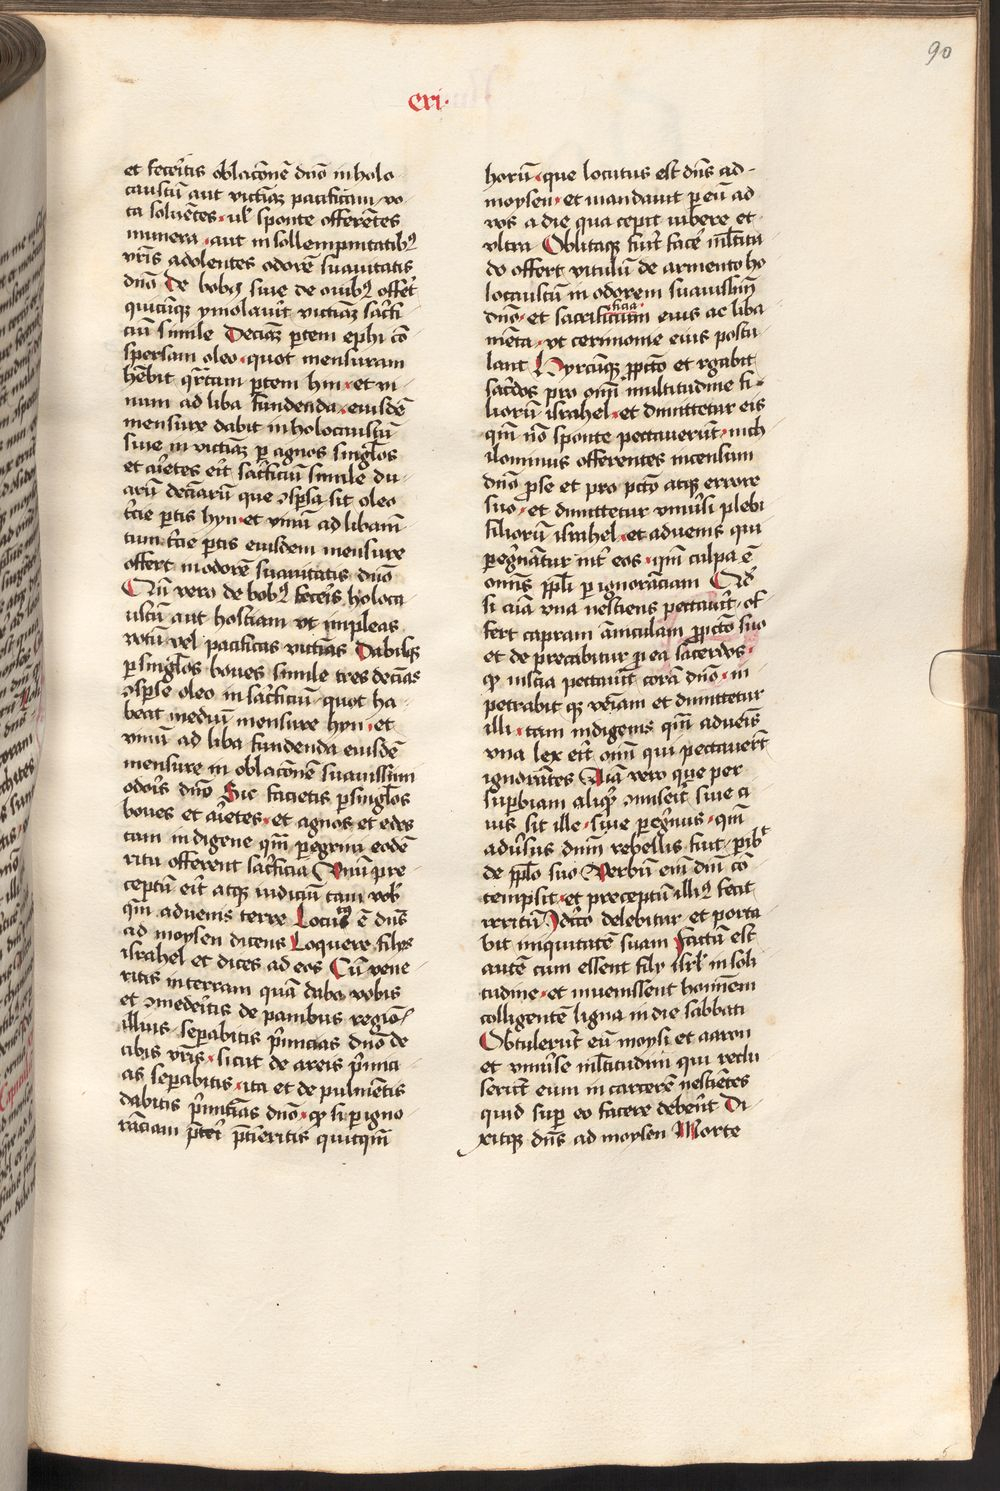 90
eri·
et fecer̄itis oblac̄onē dn̄o in holo
caustū aut victiāꝫ pacificam vo
ta soluētes · ul̕ sponte offerētes
munera · aut in sollempnitatibꝰ
vr̄is adolentes odorē suauitatis
dn̄o De bobꝫ siue de ouibꝰ offer̄t
quicūqꝫ ymolauīt victiāꝫ sac̄fi
ciū simile Deciāꝫ ꝑtem ephi cō
spersam oleo · quot mensuram
hēbit qr̄tam ꝑtem hin · et vi
num ad liba fundenda · eiusdē
mensure dabit in holocaustū
siue in victiāꝫ ꝑ agnos singl̄os
et ar̄ietes er̄it sac̄ficiū simile du
arū deciarū que ꝯspsa sit oleo
t̄cie ꝑtis hyn · et vinū ad libam̄
tum t̄cie ꝑtis eiusdem mensure
offert in odorē suauitatis dn̄o
Cū vero de bobꝰ fecer̄is holoca
ustū aut hostiam vt impleas
votū vel pacificas victias Dabisqꝫ
ꝑ singl̄os boues simile tres decias
ꝯspse oleo in sac̄ficiū · quot ha
beat mediū mensure hyn · et
vinū ad liba fundenda eiusdē
mensure in oblac̄onē suauissim
odor̄is dn̄o Sic facietis ꝑ singl̄os
boues et ar̄ietes · et agnos et edos
tam indigene qm̄ ꝑegrini eodē
ritu offerent sac̄ficia Vnū pre
ceptū er̄it atqꝫ iudiciū tam vob̕
qm̄ aduenis terre Locutꝰ ē dn̄s
ad moysen dicens Loquere filys
israhel et dices ad eos Cū vene
ritis in terram quā dabo vobis
et ꝯmeder̄itis de panibus region̄
illius · seꝑabitis p̄micias dn̄o de
cibis vr̄is · sicut de areis p̄mici
as seꝑabitis · ita et de pulmētis
dabitis p̄micias dn̄o · qꝫ si ꝑ igno
rāciam p̄ter̄i p̄tieritis quitqm̄
horū · que locutus est dn̄s ad
moysen · et mandauit ꝑ eū ad
vos a die qua cepit iubere et
vltra Oblitaqꝫ fuit̄ face̕ ml̄titu
do offert vitulū de armento ho
locaustū in odorem suauissim̄
ficia
dn̄o · et sacrificium eius ac liba
mēta · vt cermonie eius postu
lant Hyrcūqꝫ ꝓ pc̄to et rgabit
sac̄dos pro om̄i multitudine fi
liorū israhel · et dimittetur eis
qm̄ nō sponte peccauerūt · nich
ilominus offerentes incensum
dn̄o ꝓ se et pro pc̄to atqꝫ errore
suo · et dimittetur vniu̕si plebi
filiorū israhel · et aduenis qui
ꝑegnātur int̄ eos · qm̄ culpa ē
om̄is ppl̄i ꝑ ignorāciam Qd̕
si aīa vna nesciens peccauīt · of
fert capram āniculam ꝓ pc̄to suo
et de precabitur ꝓ ea sac̄erdos ·
qꝫ inscia peccauīt corā dn̄o · in
petrabit qꝫ veīam et dimittetur
illi · tam indigenis qm̄ adueīs
vna lex er̄it om̄i qui peccauer̄t
ignorātes Aīa vero que per
suꝑbiam aliqͦd ꝯmiser̄it siue ci
uis sit ille · siue ꝑegrinus · qm̄
adu̕sus dnm̄ rebellis fuit · ꝑibt
de ppl̄o suo Verbū eni dn̄i cō
tempsit · et preceptū illiꝰ fecit
irritū Idc̄co delebitur et porta
bit iniquitatē suam Factū est
autē cum essent fily isrl̕ in soli
tudine · et inuenissent hominem
colligentē ligna in die sabbati
Obtulerūt eū moysi et aaron
et vniu̕se ml̄titudini qui reclu
serūt eum in carcerē nescientes
quid sup eo facere debeīt Di
xitqꝫ dn̄s ad moysen Morte